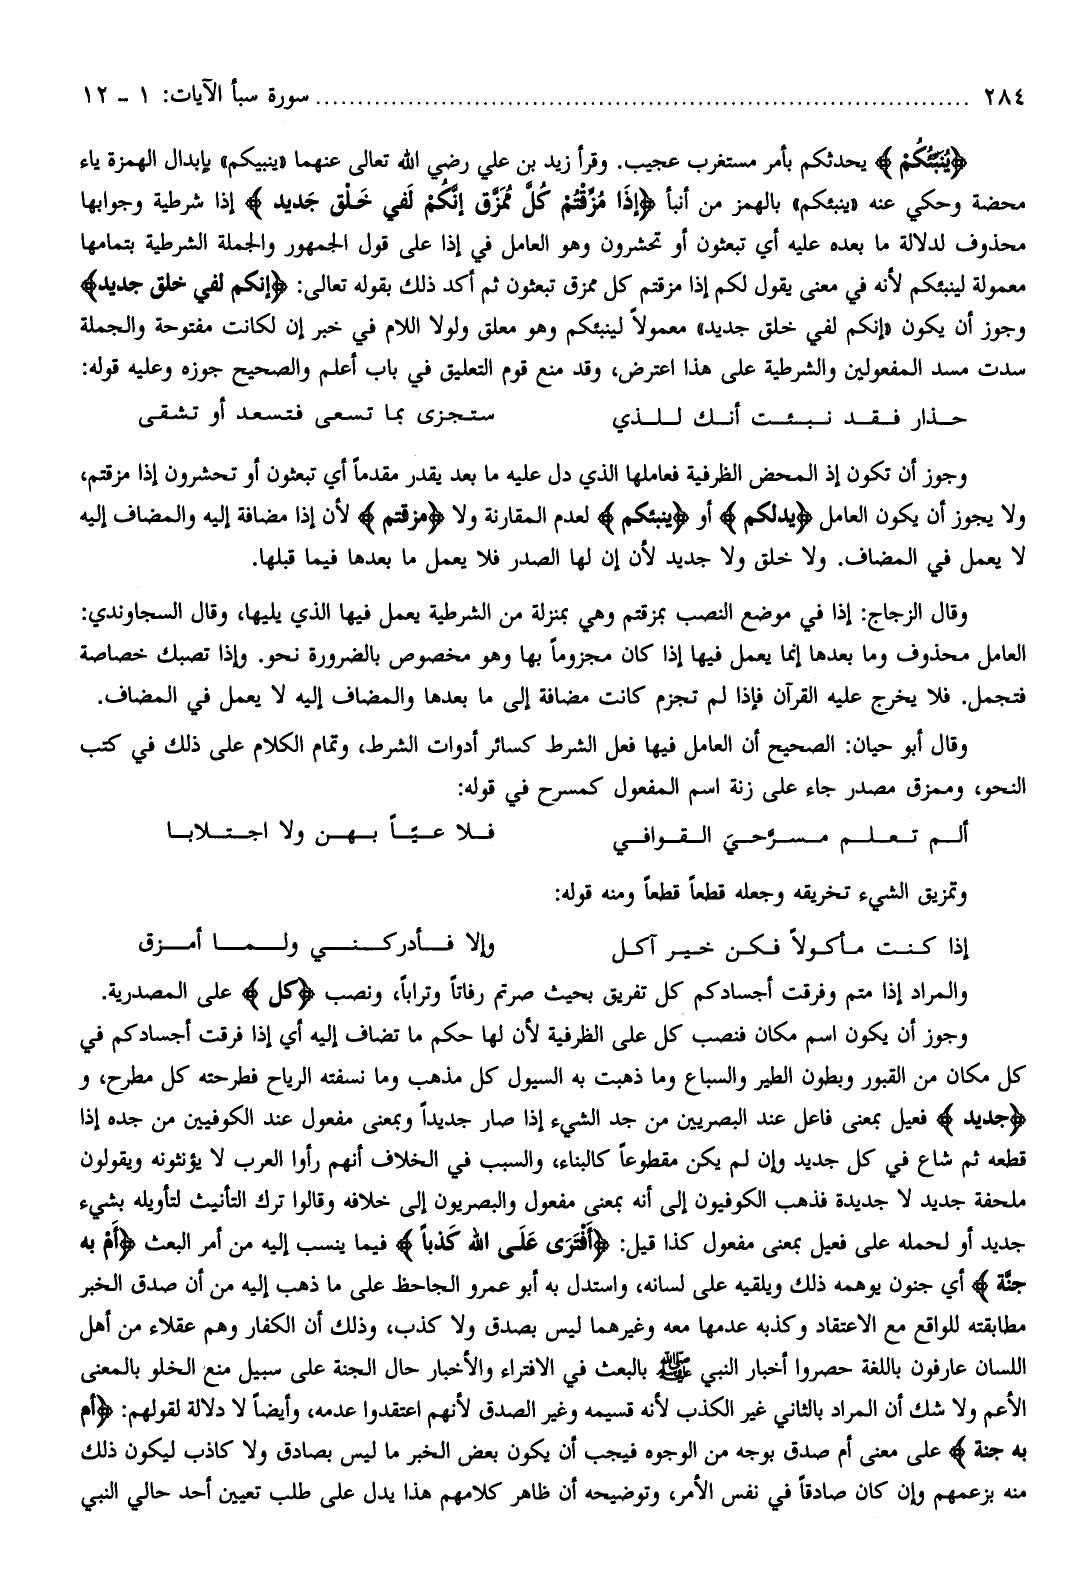 ٢٨٤ ........................................................ سورة سبأ الآيات: ١ - ١٢
﴿يُنَبِّئُكُمْ﴾ يحدثكم بأمر مستغرب عجيب. وقرأ زيد بن علي رضي الله تعالى عنهما «ينبيكم» بإبدال الهمزة ياء
محضة وحكي عنه «ينبئكم» بالهمز من أنبأ ﴿إذَا مُزِّقْتُمْ كُلَّ مُمَزَّق إنَّكُمْ لَفي خَلْق جَديد﴾ إذا شرطية وجوابها
محذوف لدلالة ما بعده عليه أي تبعثون أو تحشرون وهو العامل في إذا على قول الجمهور والجملة الشرطية بتمامها
معمولة لينبئكم لأنه في معنى يقول لكم إذا مزقتم كل ممزق تبعثون ثم أكد ذلك بقوله تعالى: ﴿إنكم لفي خلق جديد﴾
وجوز أن يكون «إنكم لفي خلق جديد» معمولاً لينبئكم وهو معلق ولولا اللام في خبر إن لكانت مفتوحة والجملة
سدت مسد المفعولين والشرطية على هذا اعترض، وقد منع قوم التعليق في باب أعلم والصحيح جوزه وعليه قوله:
حذار فقد نبئت أنك للذي ستجزى بما تسعى فتسعد أو تشقى
وجوز أن تكون إذ المحض الظرفية فعاملها الذي دل عليه ما بعد يقدر مقدماً أي تبعثون أو تحشرون إذا مزقتم،
ولا يجوز أن يكون العامل ﴿يدلكم﴾ أو ﴿ينبئكم﴾ لعدم المقارنة ولا ﴿مزقتم﴾ لأن إذا مضافة إليه والمضاف إليه
لا يعمل في المضاف. ولا خلق ولا جديد لأن إن لها الصدر فلا يعمل ما بعدها فيما قبلها.
وقال الزجاج: إذا في موضع النصب بمزقتم وهي بمنزلة من الشرطية يعمل فيها الذي يليها، وقال السجاوندي:
العامل محذوف وما بعدها إنما يعمل فيها إذا كان مجزوماً بها وهو مخصوص بالضرورة نحو. وإذا تصبك خصاصة
فتجمل. فلا يخرج عليه القرآن فإذا لم تجزم كانت مضافة إلى ما بعدها والمضاف إليه لا يعمل في المضاف.
وقال أبو حيان: الصحيح أن العامل فيها فعل الشرط كسائر أدوات الشرط، وتمام الكلام على ذلك في كتب
النحو، وممزق مصدر جاء على زنة اسم المفعول كمسرح في قوله:
ألم تعلم مسرَّحيَ القوافي فلا عيّاً بهن ولا اجتلابا
وتمزيق الشيء تخريقه وجعله قطعاً قطعاً ومنه قوله:
إذا كنت مأكولاً فكن خير آكل وإلا فأدركني ولما أمزق
والمراد إذا متم وفرقت أجسادكم كل تفريق بحيث صرتم رفاتاً وتراباً، ونصب ﴿كل﴾ على المصدرية.
وجوز أن يكون اسم مكان فنصب كل على الظرفية لأن لها حكم ما تضاف إليه أي إذا فرقت أجسادكم في
كل مكان من القبور وبطون الطير والسباع وما ذهبت به السيول كل مذهب وما نسفته الرياح فطرحته كل مطرح، و
﴿جديد﴾ فعيل بمعنى فاعل عند البصريين من جد الشيء إذا صار جديداً وبمعنى مفعول عند الكوفيين من جده إذا
قطعه ثم شاع في كل جديد وإن لم يكن مقطوعاً كالبناء، والسبب في الخلاف أنهم رأوا العرب لا يؤنثونه ويقولون
ملحفة جديد لا جديدة فذهب الكوفيون إلى أنه بمعنى مفعول والبصريون إلى خلافه وقالوا ترك التأنيث لتأويله بشيء
جديد أو لحمله على فعيل بمعنى مفعول كذا قيل: ﴿أَفْتَرَى عَلَى الله كَذباً﴾ فيما ينسب إليه من أمر البعث ﴿أَمْ به
جنَّة﴾ أي جنون يوهمه ذلك ويلقيه على لسانه، واستدل به أبو عمرو الجاحظ على ما ذهب إليه من أن صدق الخبر
مطابقته للواقع مع الاعتقاد وكذبه عدمها معه وغيرهما ليس بصدق ولا كذب، وذلك أن الكفار وهم عقلاء من أهل
اللسان عارفون باللغة حصروا أخبار النبي ﷺ بالبعث في الافتراء والأخبار حال الجنة على سبيل منع الخلو بالمعنى
الأعم ولا شك أن المراد بالثاني غير الكذب لأنه قسيمه وغير الصدق لأنهم اعتقدوا عدمه، وأيضاً لا دلالة لقولهم: ﴿أم
به جنة﴾ على معنى أم صدق بوجه من الوجوه فيجب أن يكون بعض الخبر ما ليس بصادق ولا كاذب ليكون ذلك
منه بزعمهم وإن كان صادقاً في نفس الأمر، وتوضيحه أن ظاهر كلامهم هذا يدل على طلب تعيين أحد حالي النبي